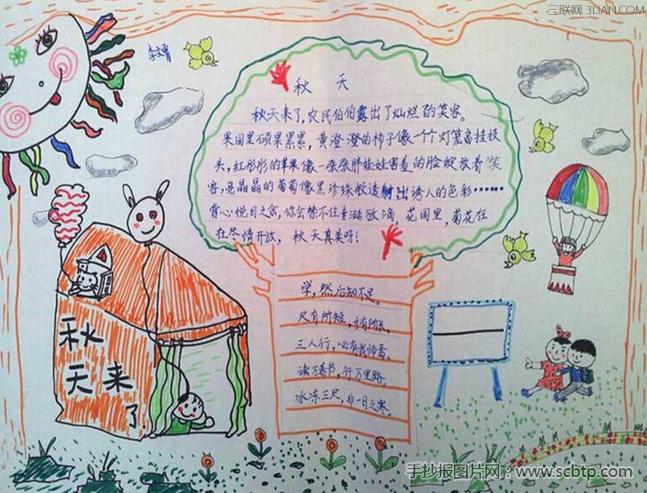 三联网 3LIAN.COM
秋 天
秋天来了,农民伯伯露出了灿烂的笑容。
果园里硕果累累,黄澄澄的柿子像一个个灯笼高挂枝
头,红彤彤的苹果像一张张胖娃娃害羞的脸绽放着笑
容,亮晶晶的葡萄像黑珍珠般透射出诱人的色彩……
赏心悦目之余,你会禁不住垂涎欲滴。花园里,菊花在
在尽情开放,秋天真美呀!
学,然后知不足。
尺有所短,寸有所长。
三人行,必有我师焉。
读万卷书,行万里路。
冰冻三尺,非一日之寒。
秋
天来
了
手抄报图片网:www.scbtp.com